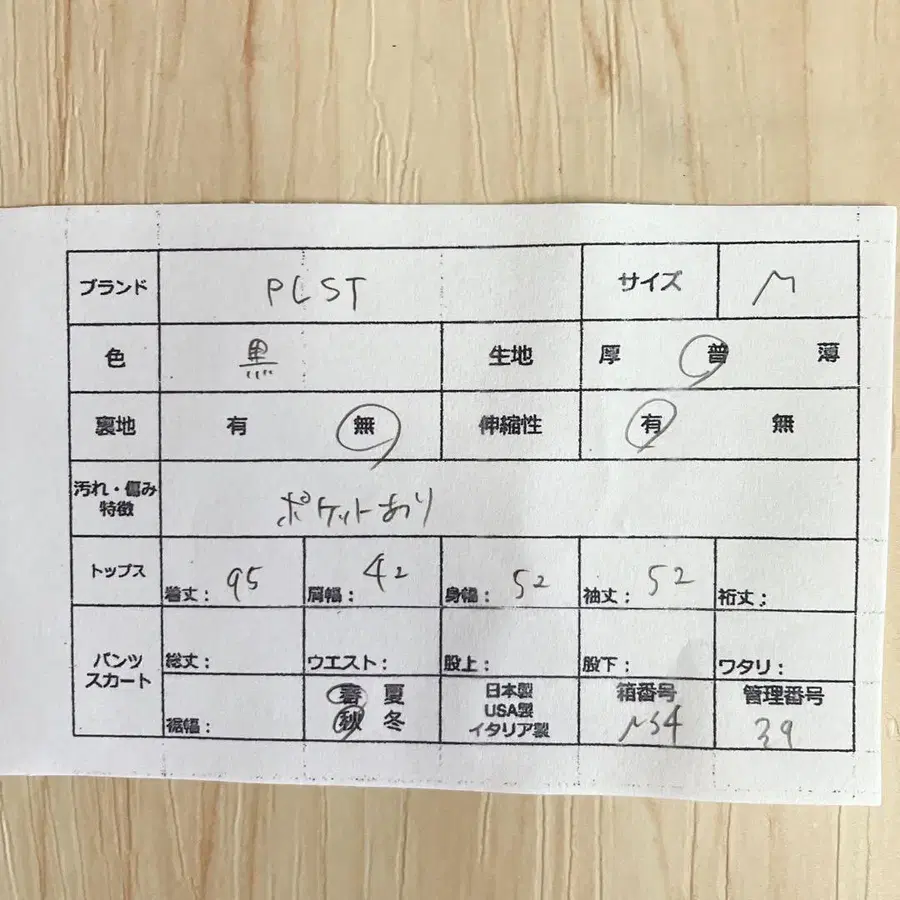 ブランド PLST サイズ M
色 黒 生地 厚 普 薄
裏地 有 無 伸縮性 有 無
汚れ・傷み
特徴 ポケットあり
トップス 着丈: 95 肩幅: 42 身幅: 52 袖丈: 52 裄丈:
パンツ
スカート 総丈: ウエスト: 股上: 股下: ワタリ:
裾幅: 春 夏
秋 冬
日本製
USA製
イタリア製
箱番号
管理番号
39